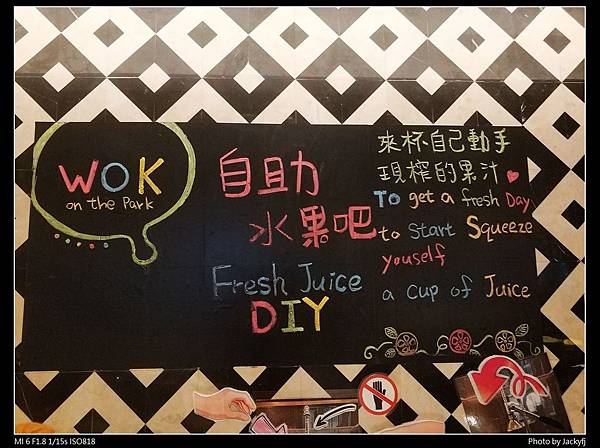 WOK
on the Park
自助
水果吧
Fresh Juice
DIY
來杯自己動手
現榨的果汁
To get a fresh Day
to Start Squeeze
youself
a cup of Juice
MI 6 F1.8 1/15s ISO818
Photo by Jackyfj